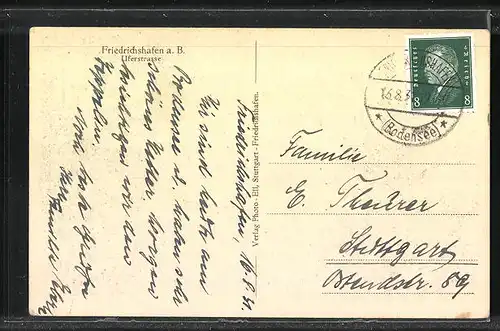 Friedrichshafen a. B.
Uferstrasse
Friedrichshafen 16.8.31.
Wir sind heute am
Bodensee u. haben sehr
schönes Wetter. Morgen
besichtigen wir den
Zeppelin.
Viele herzl. Grüße
Familie
Verlag Photo-Ell, Stuttgart-Friedrichshafen.
Deutsches Reich
8 8
16.8.3
(Bodensee)
Familie
E. Theurer
Stuttgart
Ostendstr. 89